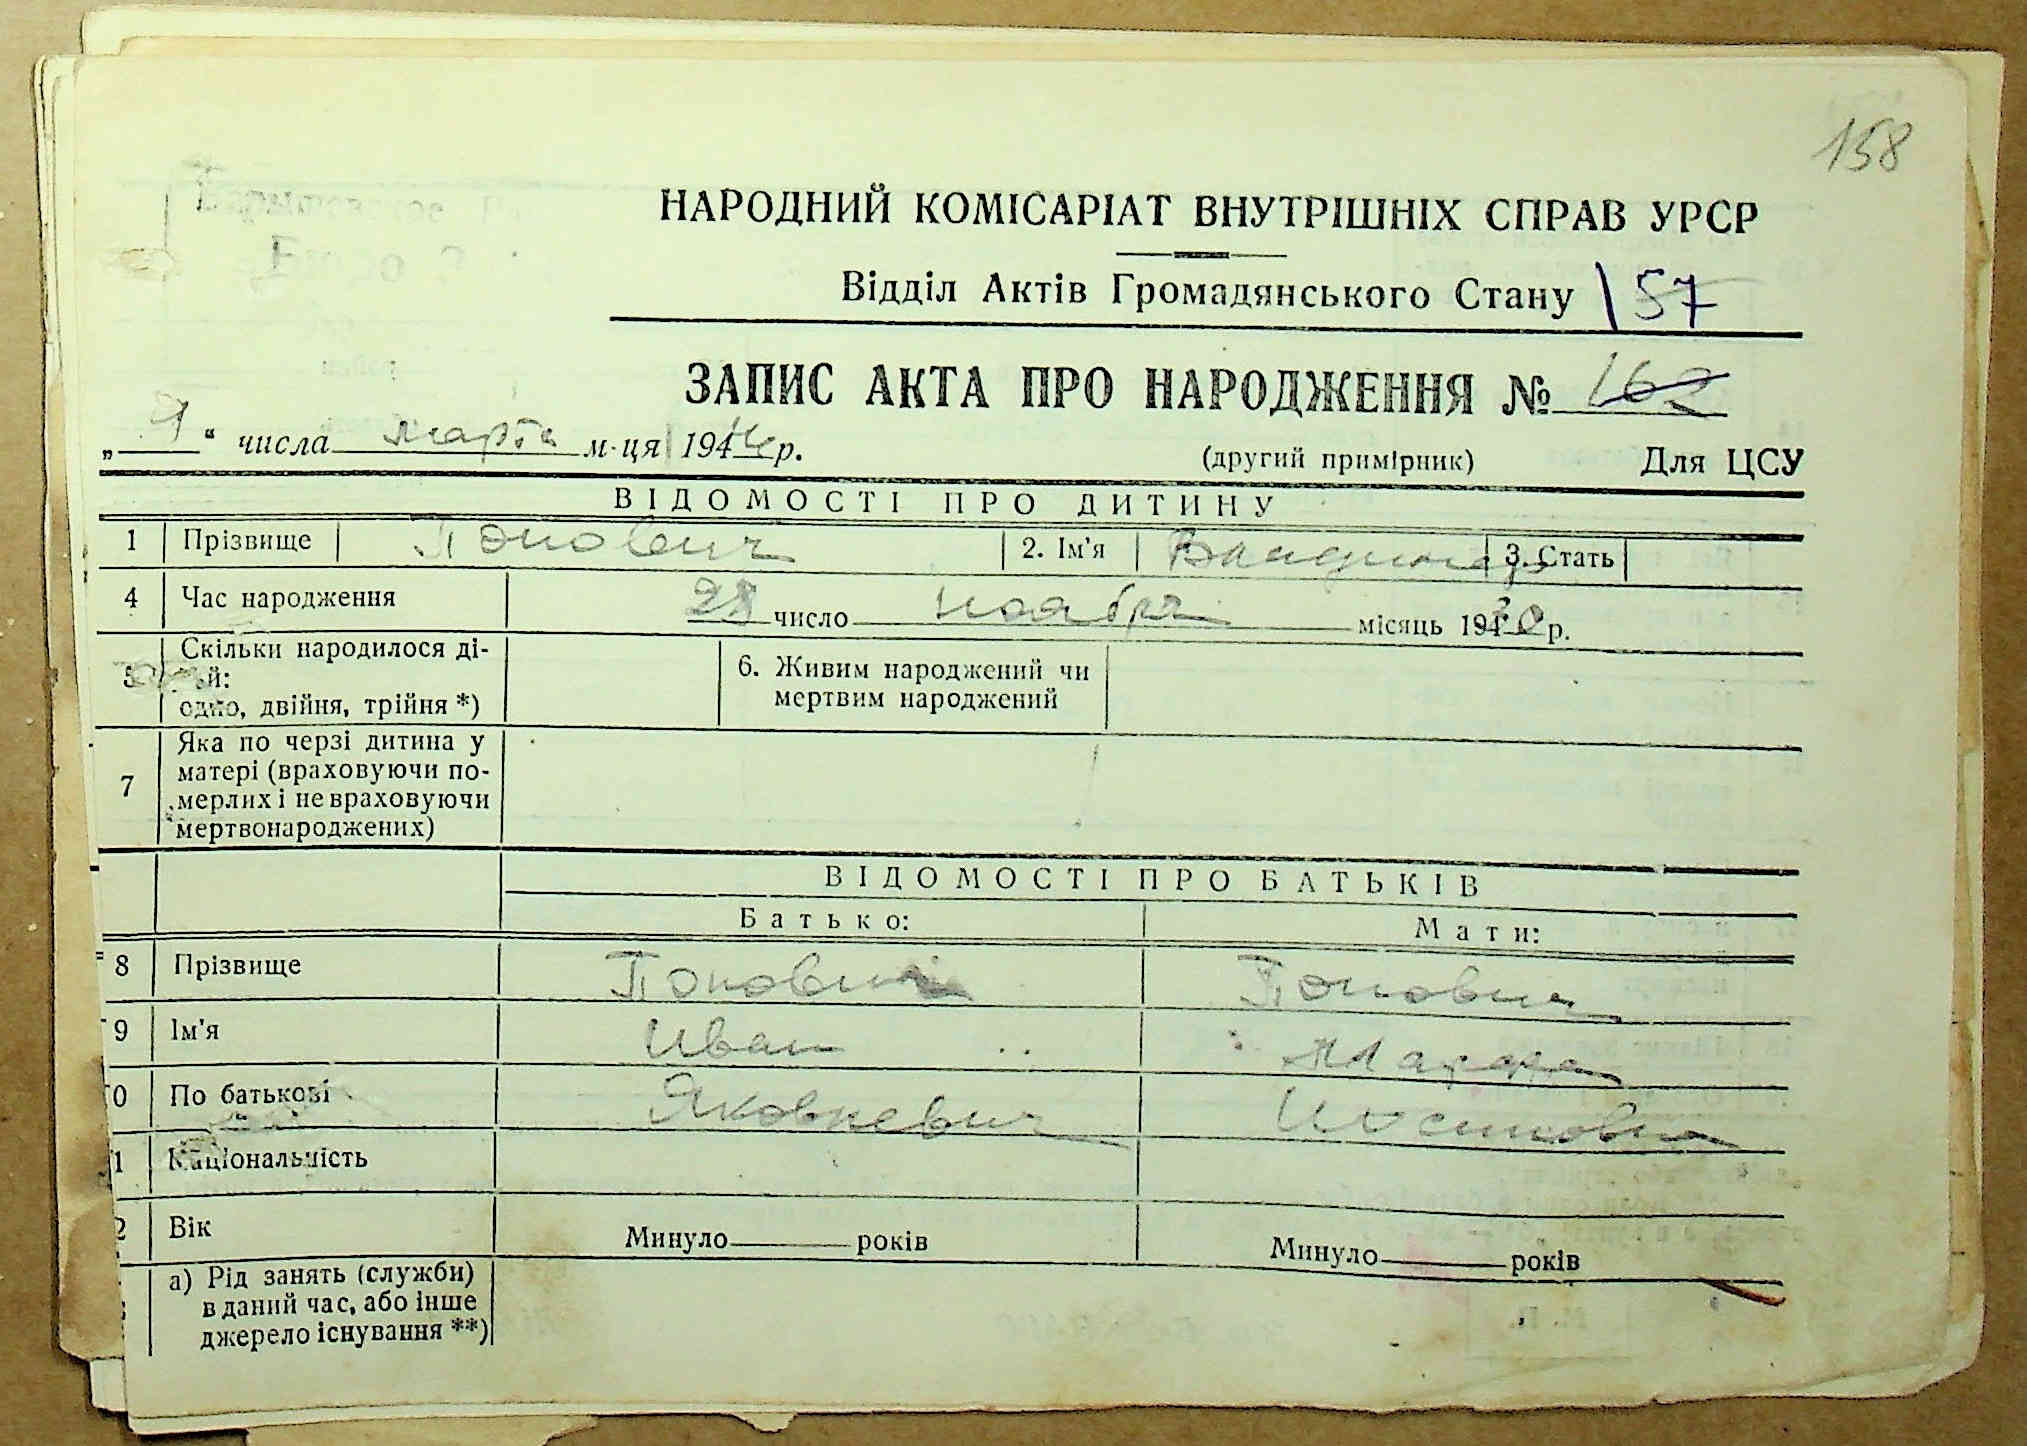 158
НАРОДНИЙ КОМІСАРІАТ ВНУТРІШНІХ СПРАВ УРСР
Відділ Актів Громадянського Стану 157
ЗАПИС АКТА ПРО НАРОДЖЕННЯ № 162
„ 1 “ числа марта м-ця 1944 р. (другий примірник) Для ЦСУ
ВІДОМОСТІ ПРО ДИТИНУ
1 Прізвище Попович 2. Ім'я Владимир 3. Стать
4 Час народження 28 число ноября місяць 1930 р.
5 Скільки народилося ді-
тей:
одно, двійня, трійня *)
6. Живим народжений чи
мертвим народжений
7 Яка по черзі дитина у
матері (враховуючи по-
мерлих і не враховуючи
мертвонароджених)
ВІДОМОСТІ ПРО БАТЬКІВ
Батько: Мати:
8 Прізвище Попович Попович
9 Ім'я Иван Марфа
0 По батькові Яковлевич Иосиповна
1 Національність
2 Вік Минуло років Минуло років
а) Рід занять (служби)
в даний час, або інше
джерело існування **)